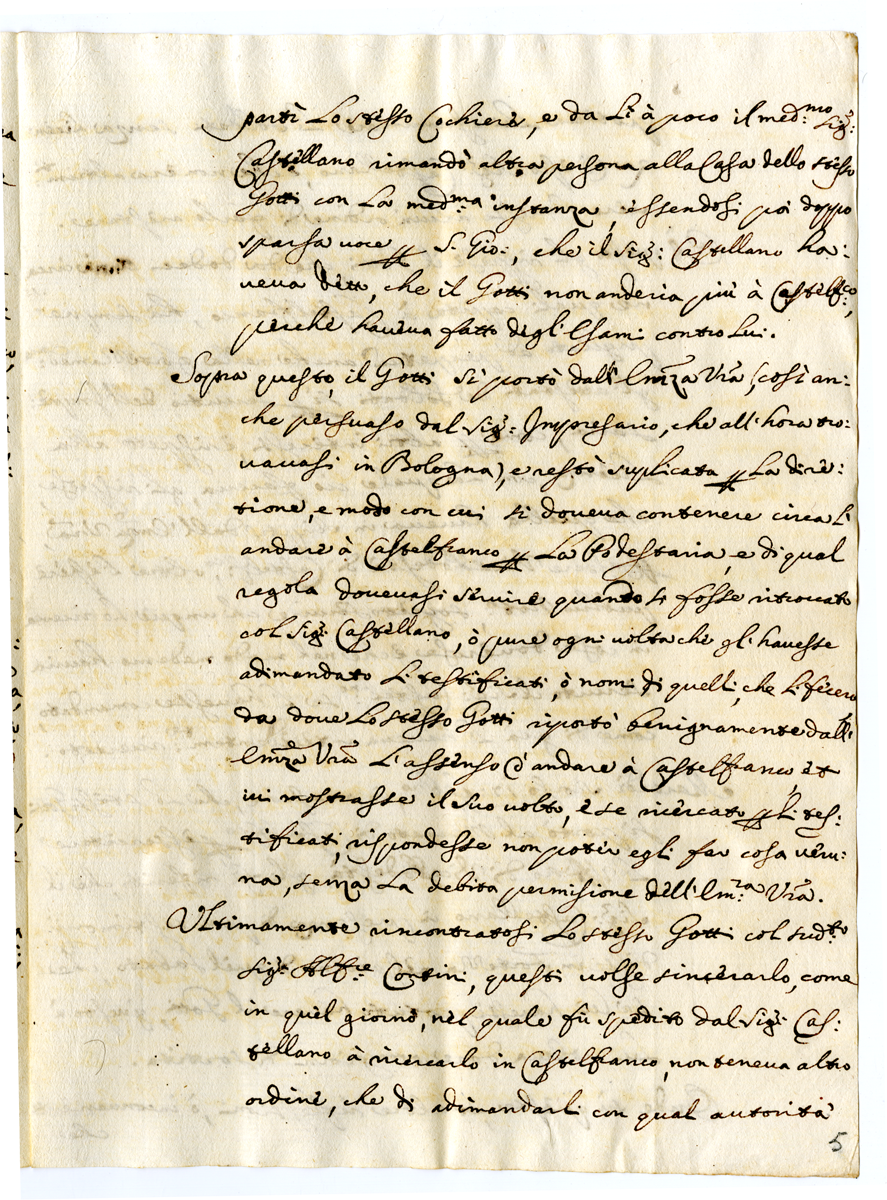 partì Lo stesso Cochiere, e da Li à poco il med:mo Sig:
Castellano rimandò altra persona alla Casa dello stesso
Gotti con La med:ma instanza, essendosi poi doppo
sparsa voce S. Gio:, che il Sig: Castellano ha:
veva dett, che il Gotti non anderia più à Castelf:co,
perche haveva fatto degl'Esami contro Lui.
Sopra questo, il Gotti si portò dall'Em:za Vra (così an:
che persuaso dal Sig: Impresario, che all'hora tro:
vavasi in Bologna), e restò suplicata La dire:
tione, e modo con cui si doveva contenere circa L'
andare à Castelfranco La Podestaria, e di qual
regola dovevasi servire quando si fosse ritrovato
col Sig: Castellano, ò pure ogni volta che gli havesse
adimandato Li testificati, ò nomi di quelli, che Li fecero
da dove Lo stesso Gotti riportò benignamente dall'
Em:za Vra L'assenso d'andare à Castelfranco, et
ivi mostrasse il suo volto, e se ricercato Li tes:
tificati, rispondesse non poter egli far cosa veru:
na, senza La debita permisione dell'Em:za Vra.
Ultimamente rincontratosi Lo stesso Gotti col sud:to
Sig: Contini, questi volse sincerarlo, come
in quel giorno, nel quale fù spedito dal Sig: Cas:
tellano à ricercarlo in Castelfranco, non teneva altro
ordine, che di adimandarli con qual autorità
5